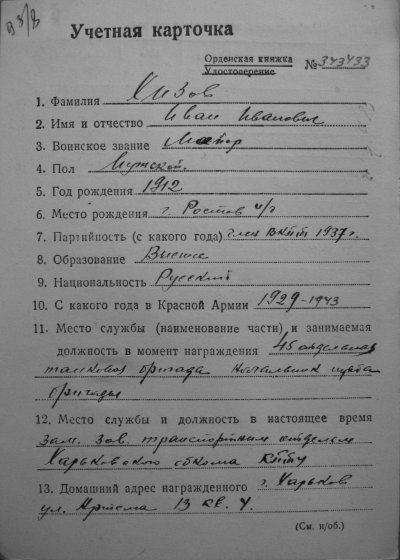 вз/8
Учетная карточка
Орденская книжка
Удостоверение №343433
1. Фамилия Хизов
2. Имя и отчество Иван Иванович
3. Воинское звание Майор
4. Пол Мужской.
5. Год рождения 1912
6. Место рождения г. Ростов н/Д
7. Партийность (с какого года) член ВКПб 1937г.
8. Образование Высшее
9. Национальность Русский
10. С какого года в Красной Армии 1929-1943
11. Место службы (наименование части) и занимаемая
должность в момент награждения 45 отдельная
танковая бригада Начальник штаба
бригады
12. Место службы и должность в настоящее время
Зам. зав. транспортным отделом
Харьковского обкома КПУ
13. Домашний адрес награжденного г. Харьков
ул. Артема 13 кв. 4.
(См. н/об.)